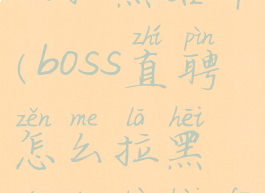 zhí pìn
(boss直聘
zěn me lā hēi
怎么拉黑